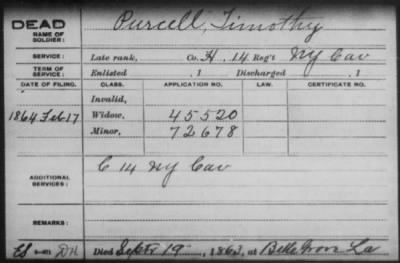 DEAD
NAME OF SOLDIER:
Purcell, Timothy
SERVICE:
Late rank, Co. H, 14 Reg't NY Cav
TERM OF SERVICE:
Enlisted , 1 Discharged , 1
DATE OF FILING. CLASS. APPLICATION NO. LAW. CERTIFICATE NO.
Invalid,
1864 Feb 17 Widow, 45520
Minor, 72678
ADDITIONAL SERVICES:
C 14 NY Cav
REMARKS:
Died Sept 19, 1863, at Belle Grove La